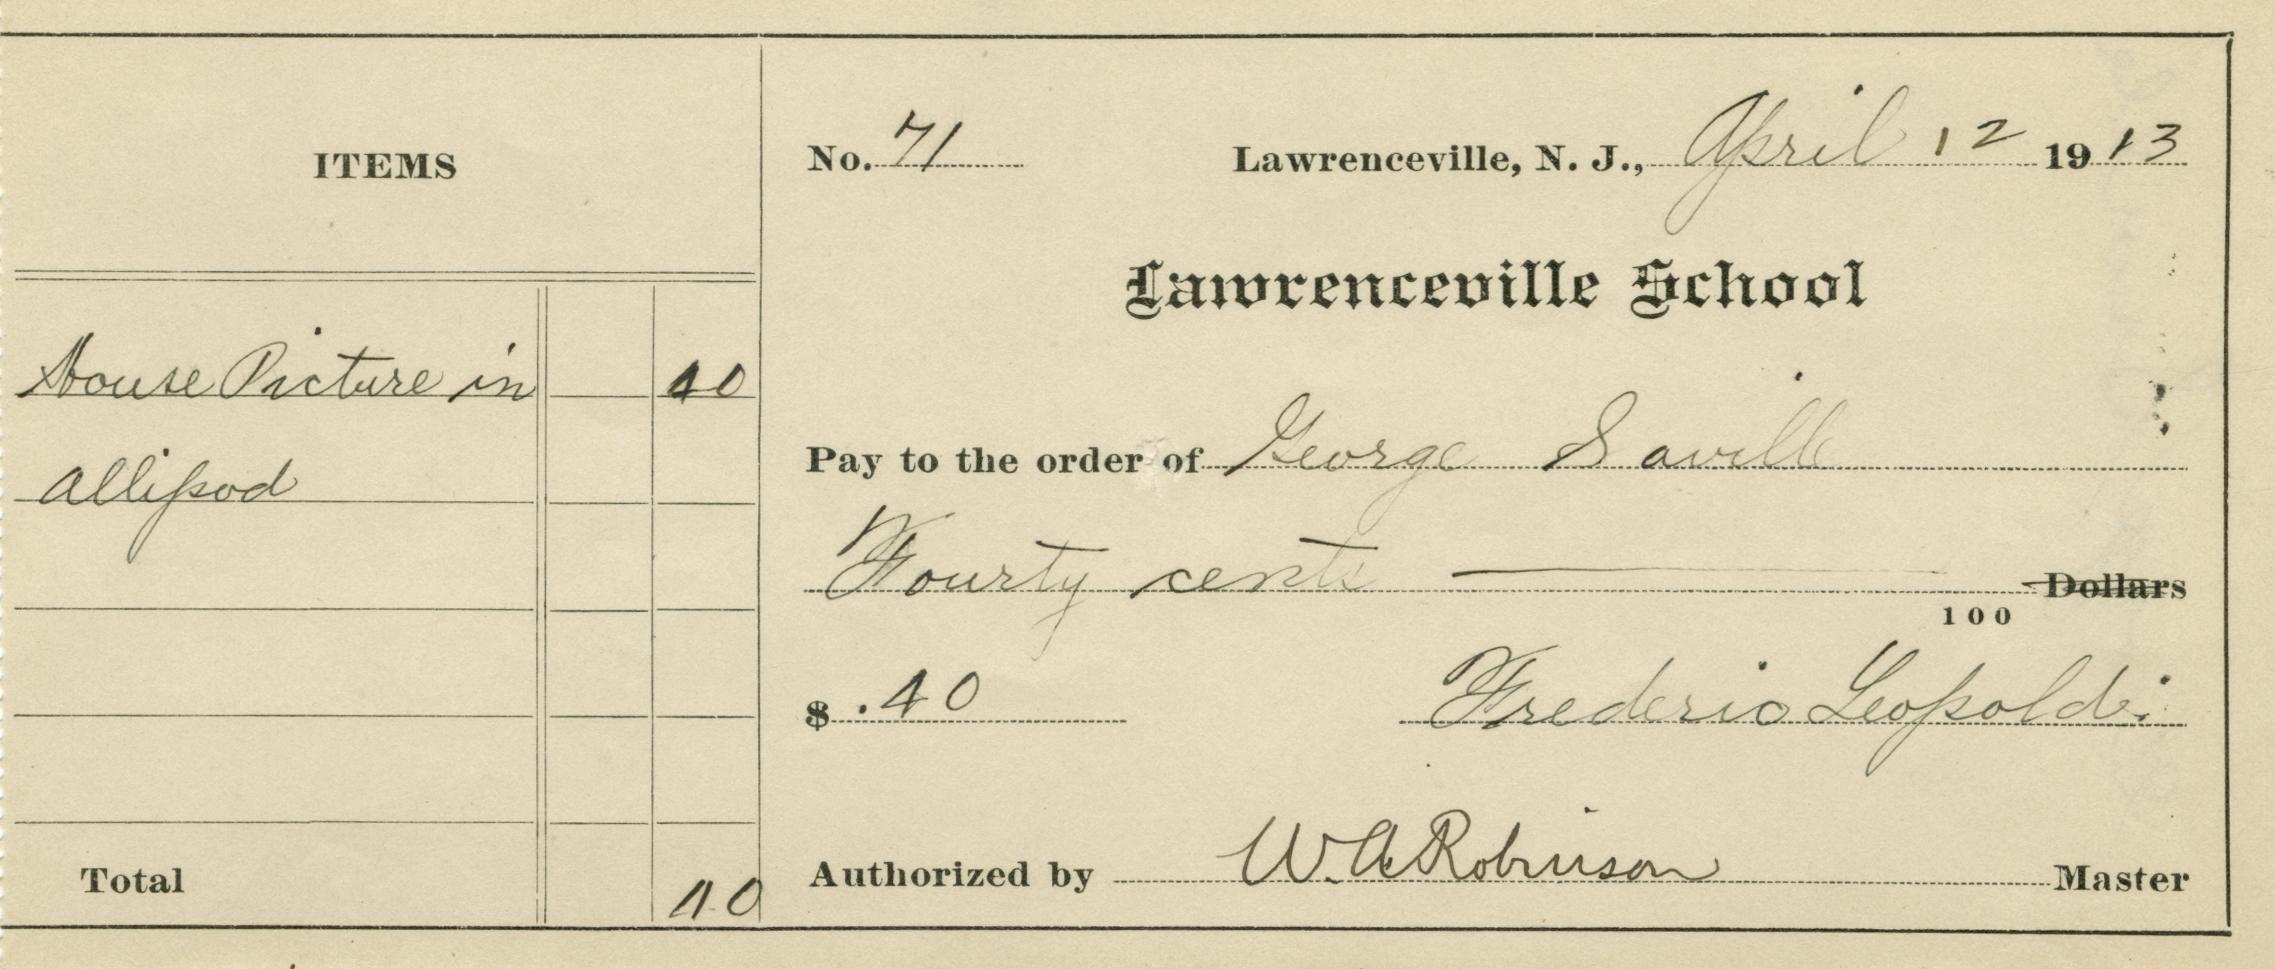 ITEMS
House Picture in 40
allipod
Total 40
No. 71 Lawrenceville, N. J., April 12 1913
Lawrenceville School
Pay to the order of George Saville
Fourty cents Dollars
100
$ .40 Frederic Leopold
Authorized by W. A. Robinson Master